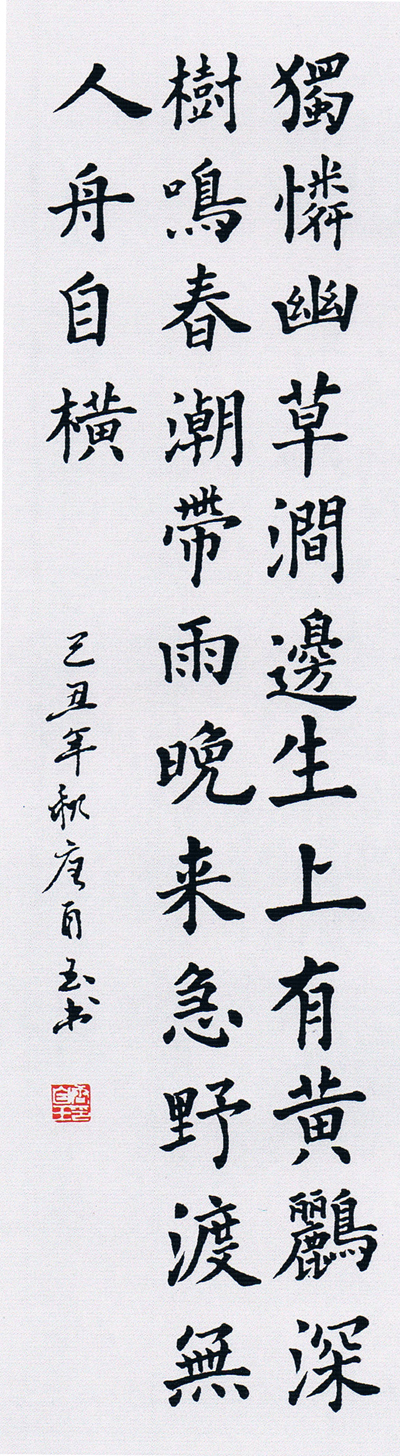 獨憐幽草澗邊生上有黃鸝深
樹鳴春潮帶雨晚来急野渡無
人舟自橫
己丑年秋唐自玉书